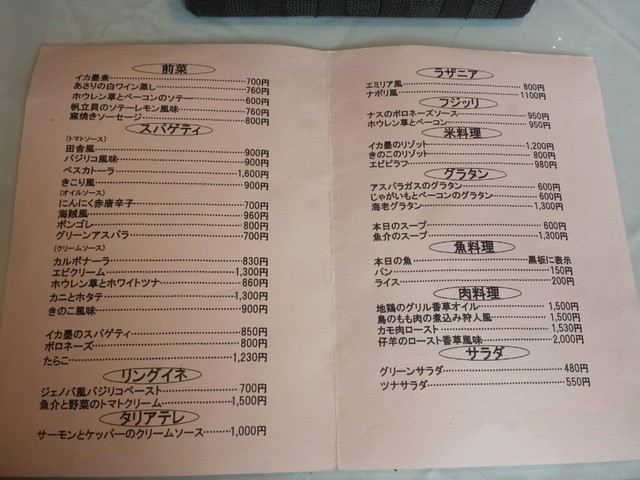 前菜
イカ墨煮 700円
あさりの白ワイン蒸し 760円
ホウレン草とベーコンのソテー 600円
帆立貝のソテーレモン風味 760円
窯焼きソーセージ 800円
スパゲティ
(トマトソース)
田舎風 900円
バジリコ風味 900円
ペスカトーラ 1,600円
きこり風 900円
(オイルソース)
にんにく赤唐辛子 700円
海賊風 960円
ボンゴレ 800円
グリーンアスパラ 700円
(クリームソース)
カルボナーラ 830円
エビクリーム 1,300円
ホウレン草とホワイトツナ 860円
カニとホタテ 1,300円
きのこ風味 900円
イカ墨のスパゲティ 850円
ボロネーズ 800円
たらこ 1,230円
リングイネ
ジェノバ風バジリコペースト 700円
魚介と野菜のトマトクリーム 1,500円
タリアテレ
サーモンとケッパーのクリームソース 1,000円
ラザニア
エミリア風 800円
ナポリ風 1100円
フジッリ
ナスのボロネーズソース 950円
ホウレン草とベーコン 950円
米料理
イカ墨のリゾット 1,200円
きのこのリゾット 800円
エビピラフ 980円
グラタン
アスパラガスのグラタン 600円
じゃがいもとベーコンのグラタン 600円
海老グラタン 1,300円
本日のスープ 600円
魚介のスープ 1,300円
魚料理
本日の魚 黒板に表示
パン 150円
ライス 200円
肉料理
地鶏のグリル香草オイル 1,500円
鳥のもも肉の煮込み狩人風 1,500円
カモ肉ロースト 1,530円
仔羊のロースト香草風味 2,000円
サラダ
グリーンサラダ 480円
ツナサラダ 550円